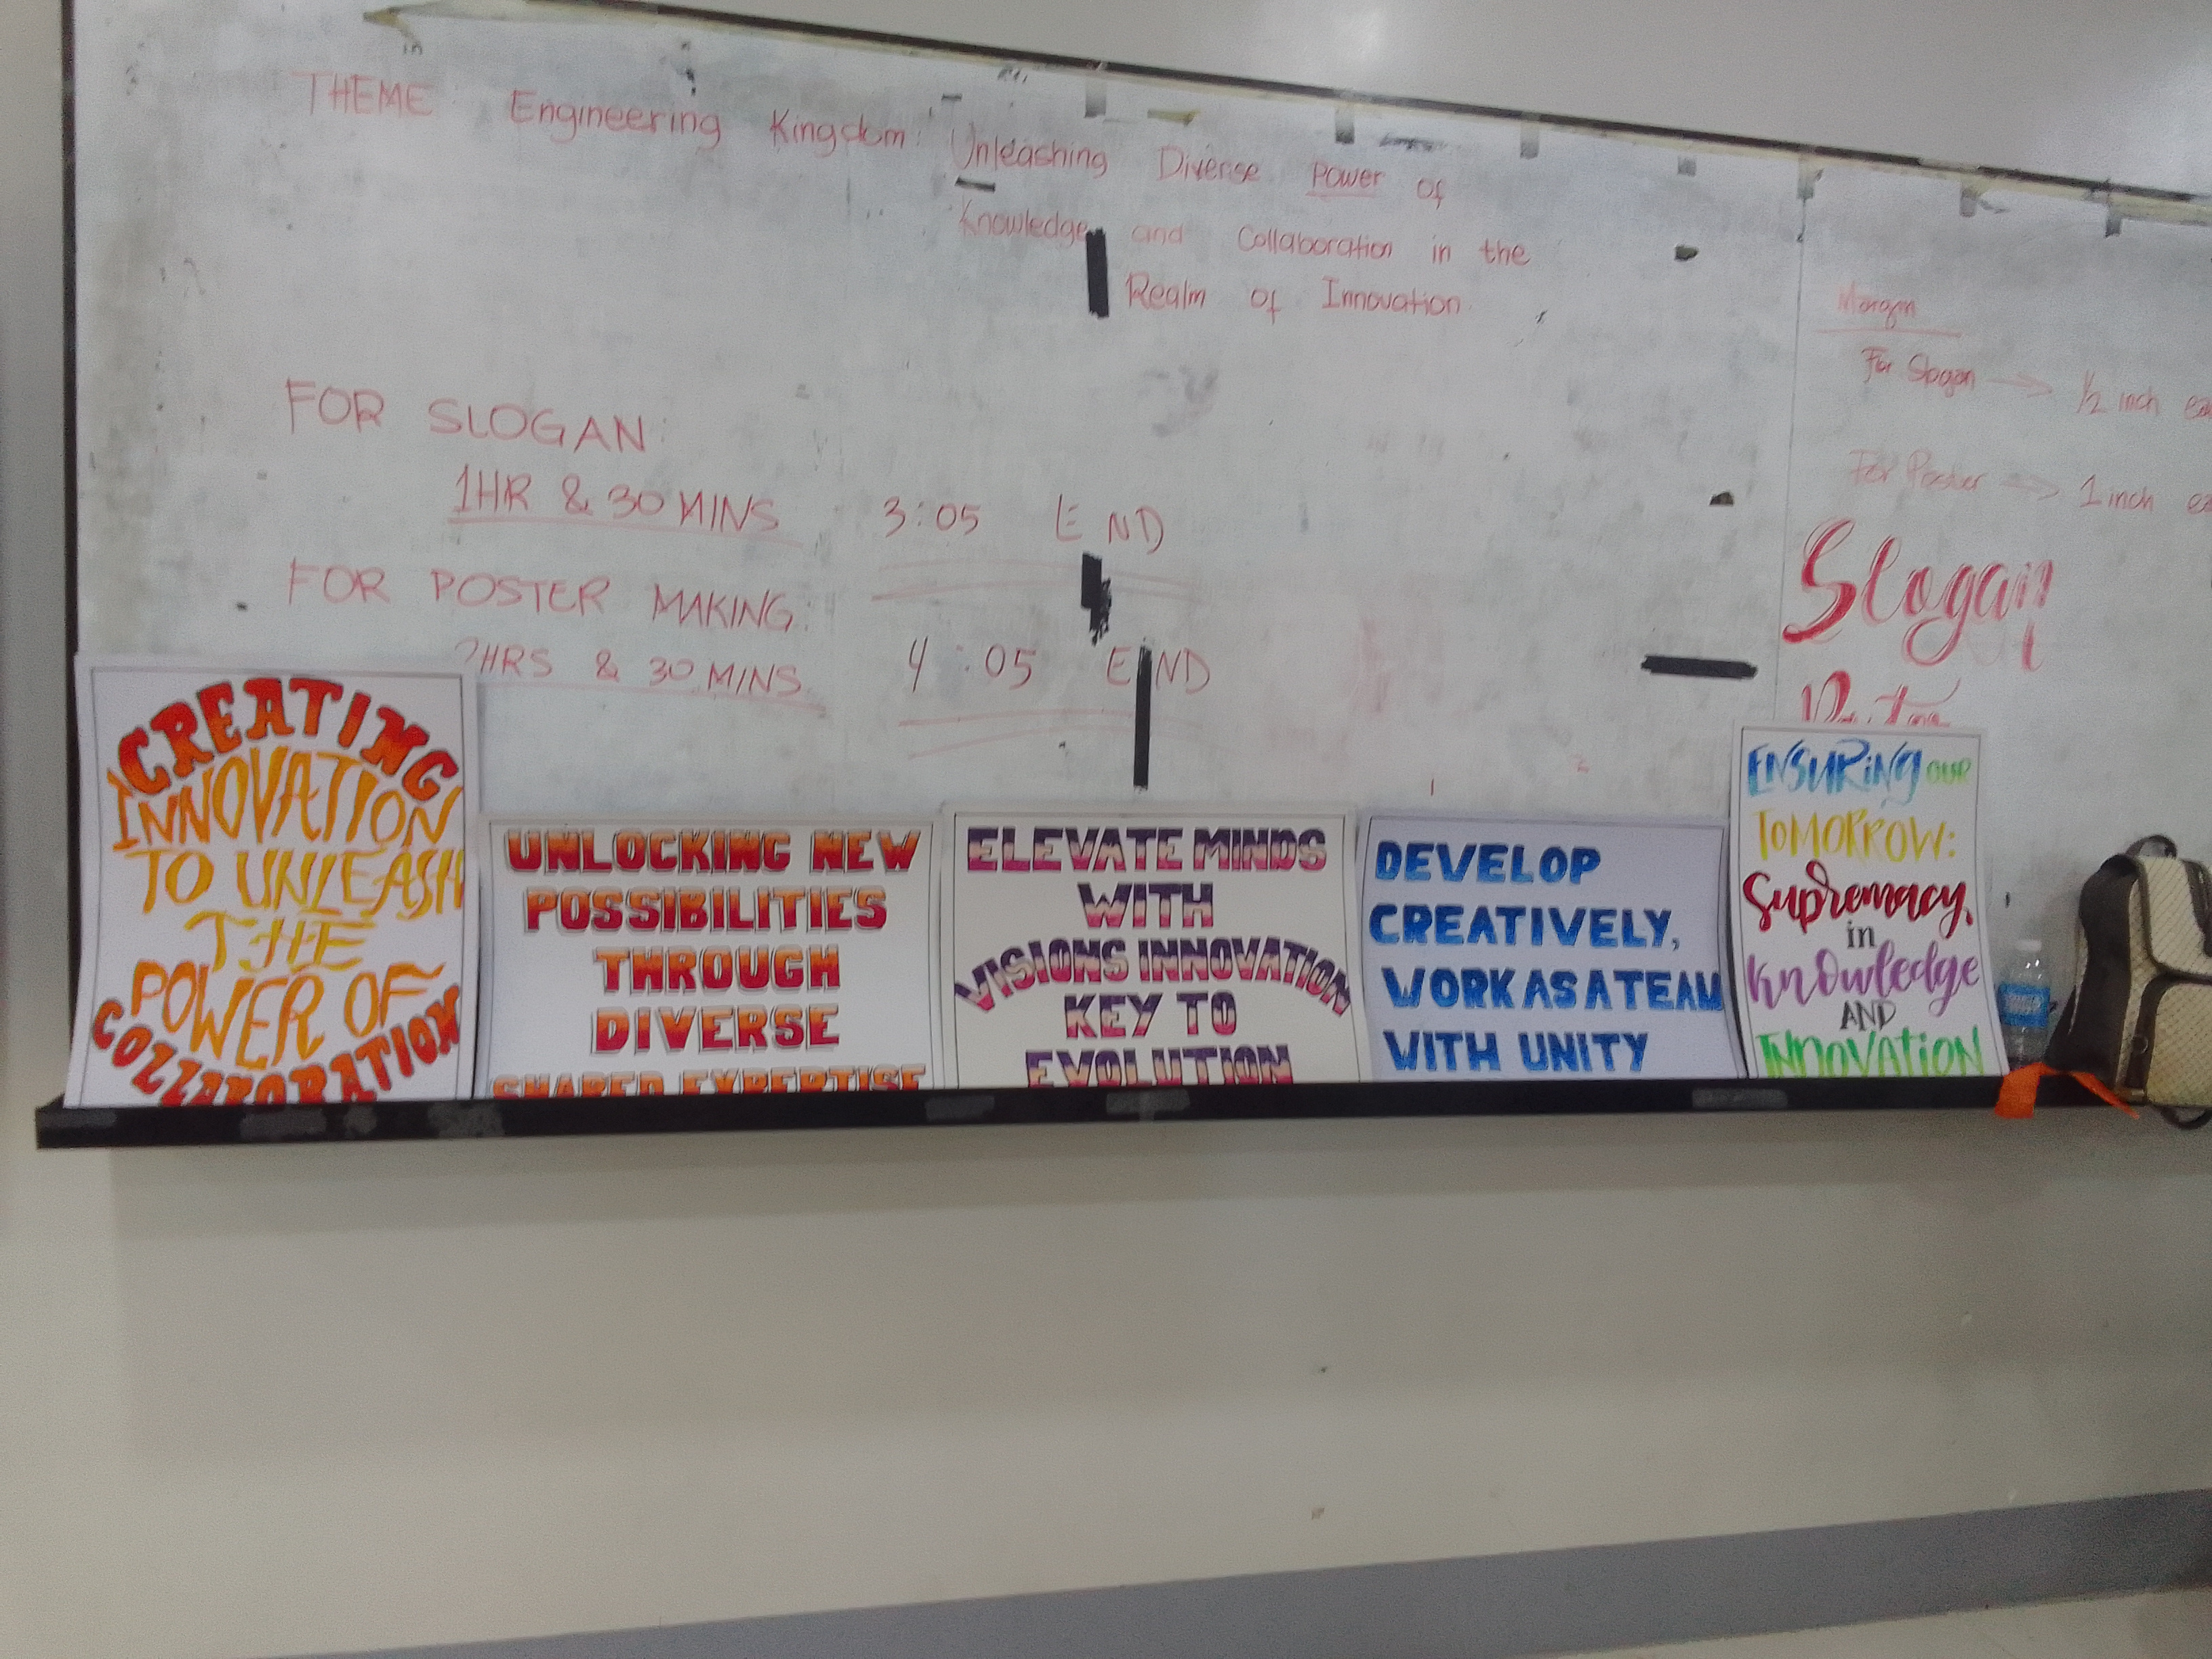 THEME: Engineering Kingdom: Unleashing Diverse Power of
Knowledge and Collaboration in the
Realm of Innovation
FOR SLOGAN:
1HR & 30 MINS 3:05 END
FOR POSTER MAKING:
2HRS & 30 MINS 4:05 END
Margin
For Slogan → 1/2 inch
For Poster → 1 inch
Slogan
CREATING
INNOVATION
TO UNLEASH
THE
POWER OF
COLLABORATION
UNLOCKING NEW
POSSIBILITIES
THROUGH
DIVERSE
SHARED EXPERTISE
ELEVATE MINDS
WITH
VISIONS INNOVATION
KEY TO
EVOLUTION
DEVELOP
CREATIVELY,
WORK AS A TEAM
WITH UNITY
ENSURING OUR
TOMORROW:
Supremacy
in
Knowledge
AND
INNOVATION